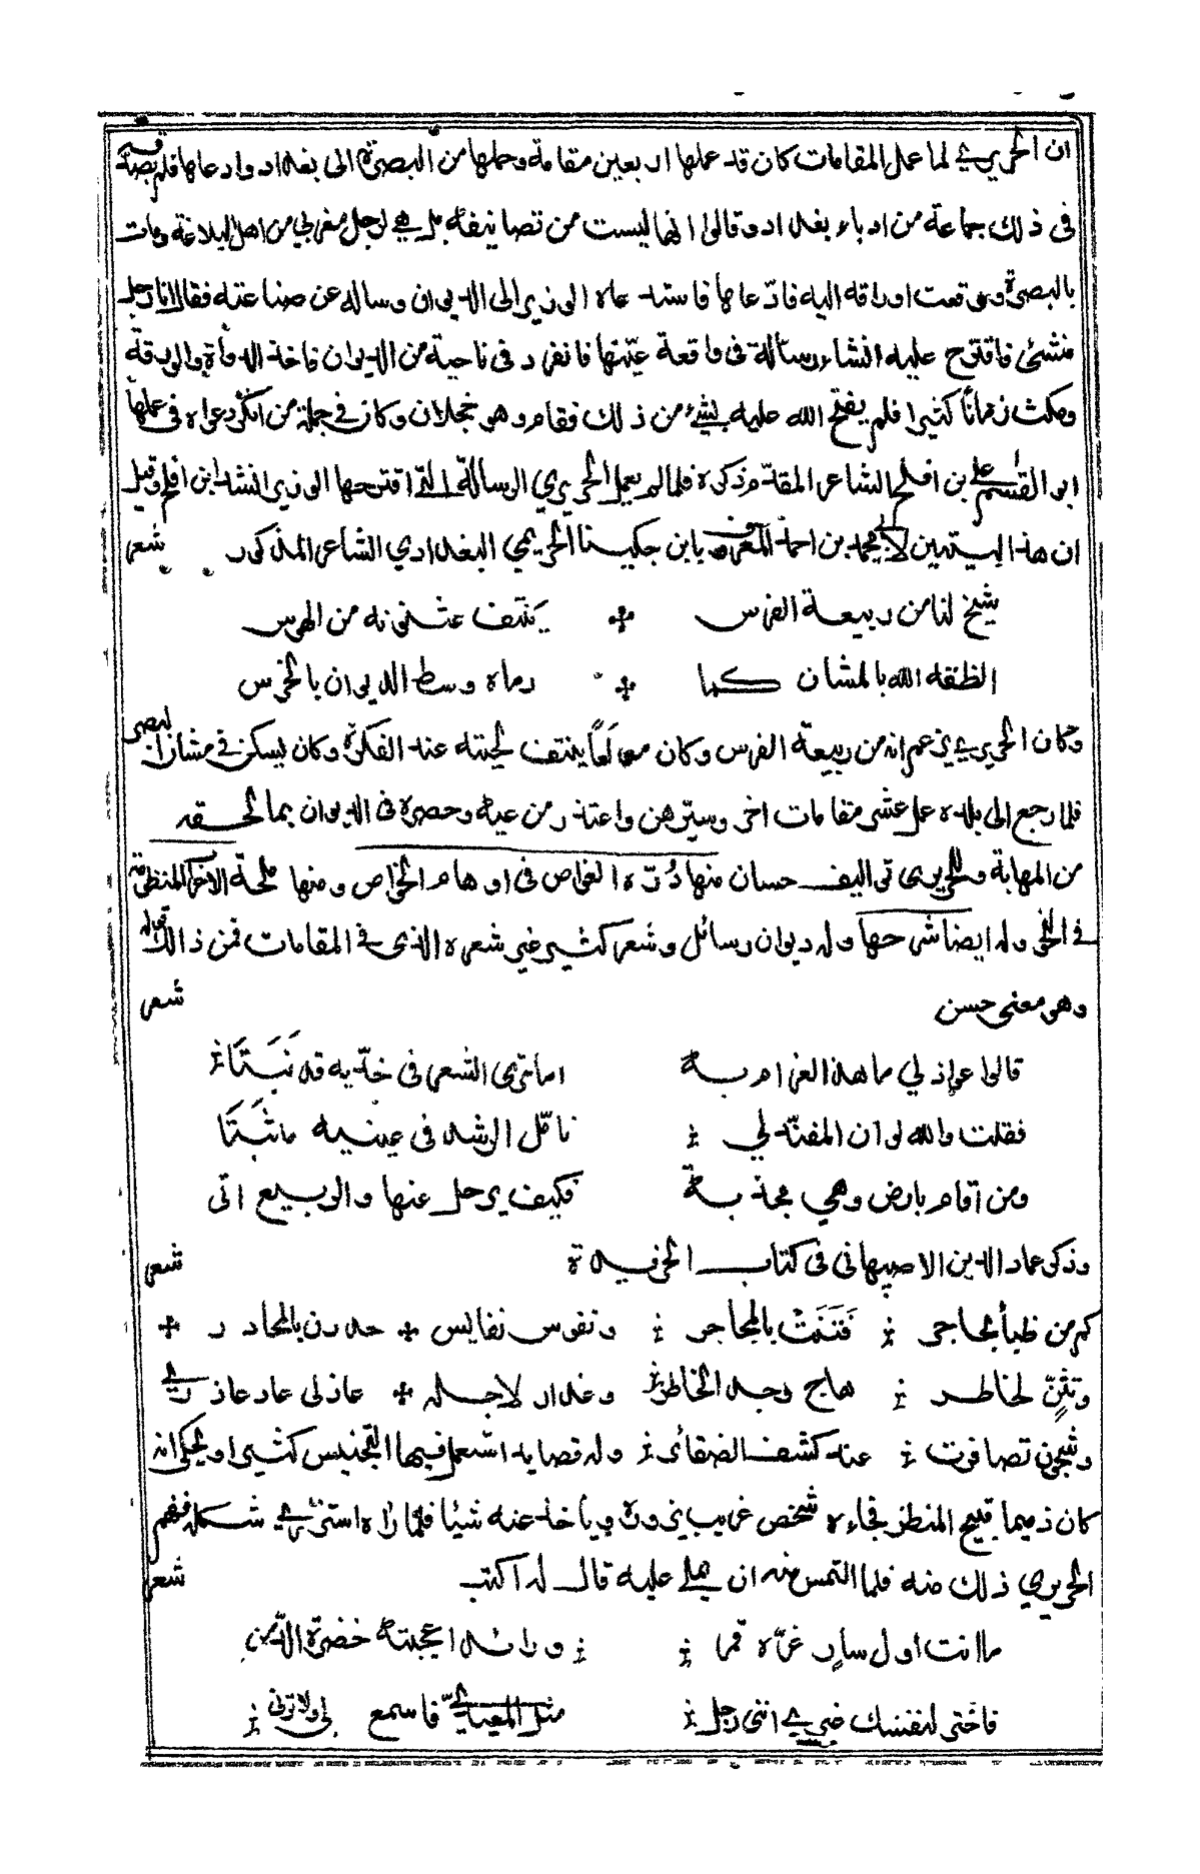 ان الحريري لما عمل المقامات كان قد عملها اربعين مقامة وحملها من البصرة الى بغداد وادعاها فلم يصدقه
فى ذلك جماعة من ادباء بغداد وقالوا انها ليست من تصانيفه بل هي لرجل مغربي من اهل البلاغة ومات
بالبصرة ووقعت اوراقه اليه فادّعاها فاستدعاه الوزير الى الديوان وساله عن صناعته فقال انا رجل
منشئ فاقترح عليه انشاء رسالة فى واقعة عيّنها فانفرد فى ناحية من الديوان فاخذ الدواة والورقة
ومكث زماناً كثيرا فلم يفتح الله عليه بشئ من ذلك فقام وهو خجلان وكان في جملة من انكر دعواه فى عملها
ابو القسم علي بن افلح الشاعر المقدّم ذكره فلما لم يعمل الحريري الرسالة التى اقترحها الوزير انشد ابن افلح وقيل
ان هذا البيتين لابي محمد بن احمد المعروف بابن جكينا الحريمي البغدادي الشاعر المذكور شعر
شيخ لنا من ربيعة الفرس ينتف عثنونه من الهوس
انطقه الله بالمشان كما رماه وسط الديوان بالخرس
وكان الحريري يزعم انه من ربيعة الفرس وكان مولعاً ينتف لحيته عند الفكرة وكان يسكن في مشان البصرة
فلما رجع الى بلده عمل عشر مقامات اخر وسيّرهن واعتذر من عيه وحصره فى الديوان بما لحقه
من المهابة وللحريرى تواليف حسان منها دُرّة الغواص فى اوهام الخواص ومنها ملحة الاعراب المنظومة
في النحو وله ايضا شرحها وله ديوان رسائل وشعر كثير غير شعره الذى في المقامات فمن ذالك قوله
وهو معنى حسن شعر
قالوا عواذلي ما هذا الغرام به اما ترى الشعر فى خدّيه قد نَبَتَا
فقلت والله لو ان المفنّد لي تامّل الرشد فى عينيه ما ثَبَتَا
ومن اقام بارض وهي مجدبة فكيف يرحل عنها والربيع اتى
وذكر عماد الدين الاصبهانى فى كتاب الخريدة شعر
كم من ظبأ بحاجر فَتَنَتْ بالمحاجر ونفوس نفايس حدرن بالمحادر
وتثنّ لخاطر هاج وجد الخاطر وعذار لاجله عاذلى عاد عاذري
وشجون تضافرت عند كشف الضفائر وله قصايد استعمل فيها التجنيس كثيرا ويحكى انه
كان ذميما قبيح المنظر فجاءه شخص غريب يزوره ويأخذ عنه شيئا فلما رآه استزرى شكله ففهم
الحريري ذلك منه فلما التمس منه ان يملي عليه قال له اكتب شعر
ما انت اول سارٍ غرّه قمر ورائد اعجبته خضرة الدّمن
فاختر لنفسك غيري اننى رجل مثل المعيديّ فاسمع بي ولا ترنى